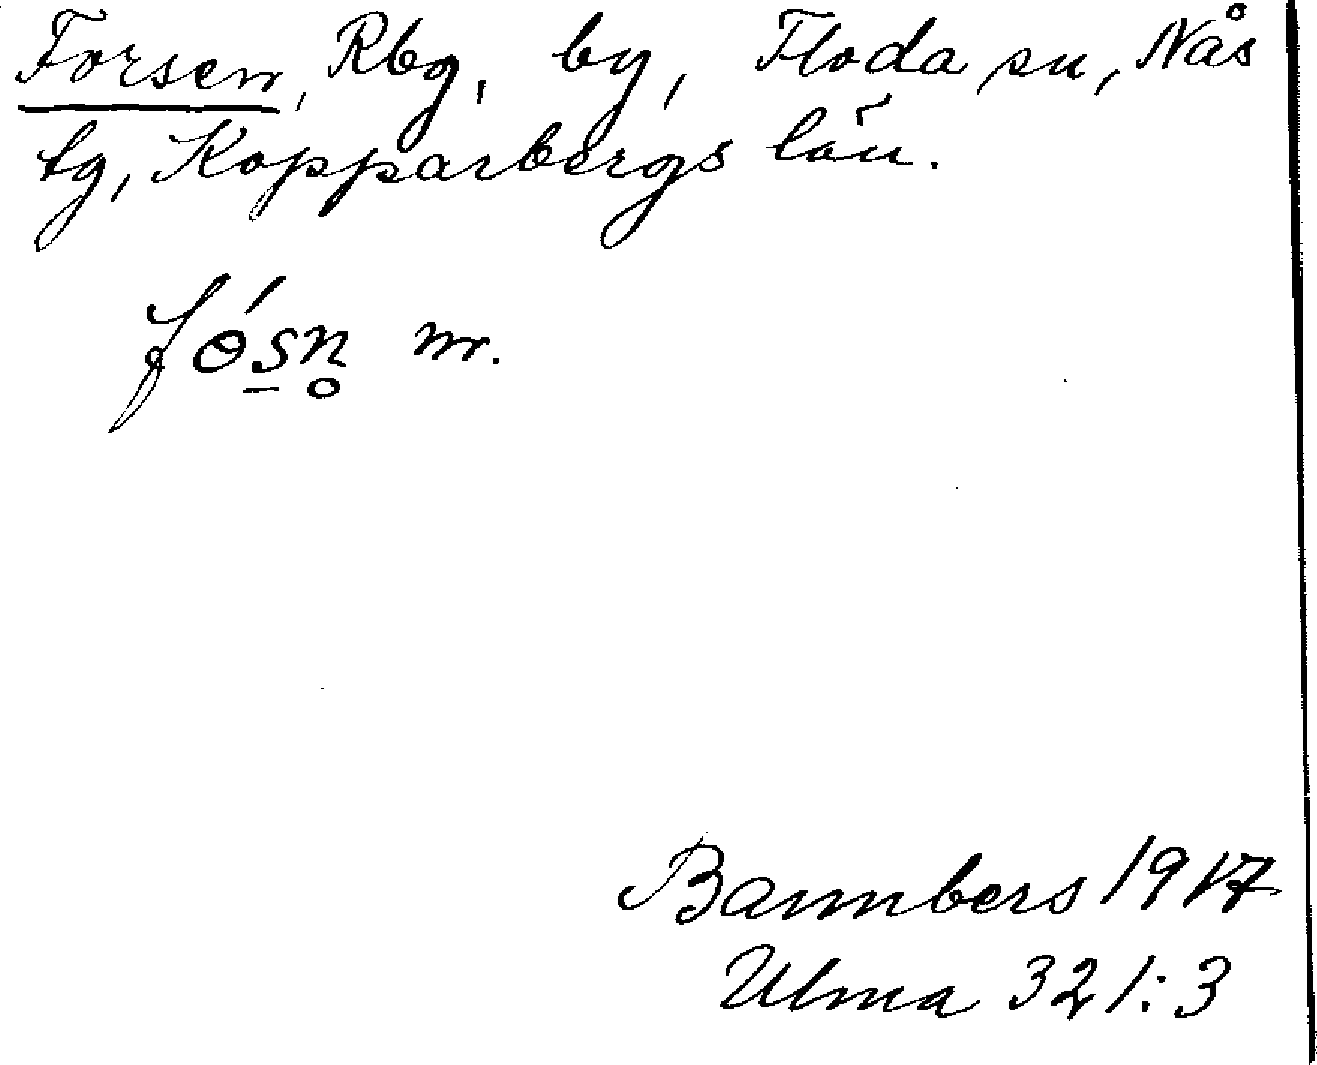 Forsen, Rbg, by, Floda sn, Nås
tg, Kopparbergs län.
fɵ́s̠n̥ nr.
Bannbers 1917
Ulma 321:3